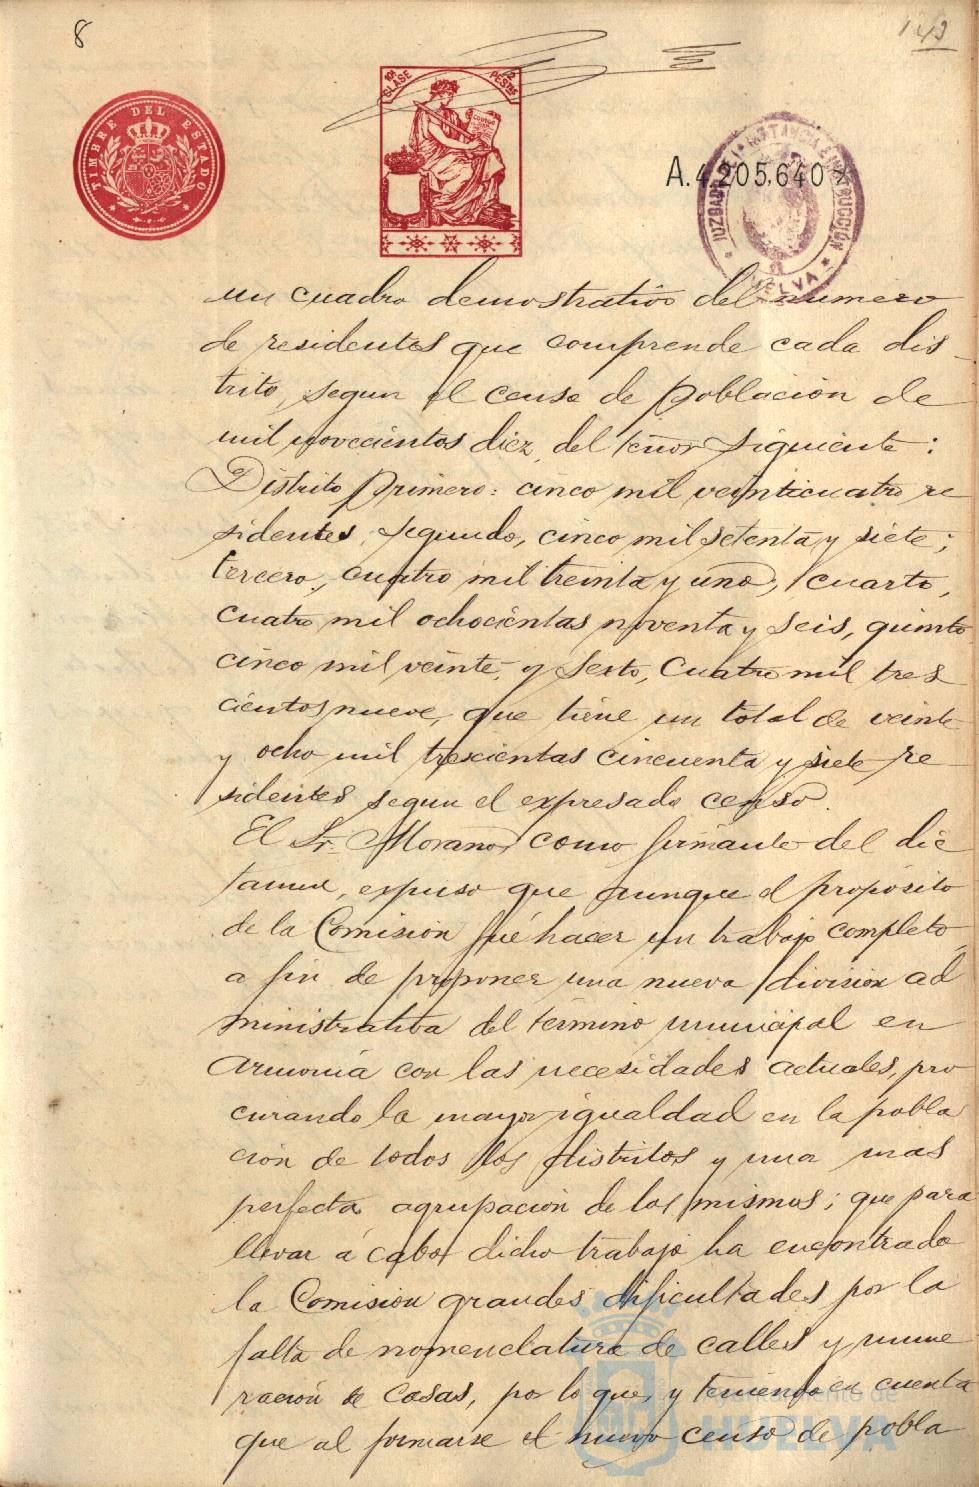 8
143
10ª CLASE
2 PESTAS
TIMBRE DEL ESTADO
A.4.205,640 *
JUZGADO DE 1ª INSTANCIA E INSTRUCCIÓN * HUELVA *
un cuadro demostrativo del numero
de residentes que comprende cada dis-
trito, segun el censo de Población de
mil novecientos diez, del tenor siguiente:
Distrito Primero: cinco mil veinticuatro re
sidentes; segundo, cinco mil setenta y siete;
tercero, cuatro mil treinta y uno; cuarto,
cuatro mil ochocientas noventa y seis, quinto
cinco mil veinte, y sexto, cuatro mil tres
cientos nueve, que tiene un total de veinte
y ocho mil trescientas cincuenta y siete re-
sidentes segun el expresado censo.
El Sr. Morano, como firmante del dic
tamen, expuso que aunque el propósito
de la Comision fué hacer un trabajo completo,
a fin de proponer una nueva division ad
ministrativa del término municipal en
armonía con las necesidades actuales, pro
curando la mayor igualdad en la pobla
ción de todos los distritos y una mas
perfecta agrupación de los mismos; que para
llevar á cabo dicho trabajo ha encontrado
la Comision grandes dificultades por la
falta de nomenclatura de calles y nume
ración de casas, por lo que, y teniendo en cuenta
que al formarse el nuevo censo de pobla
Ayuntamiento de
HUELVA